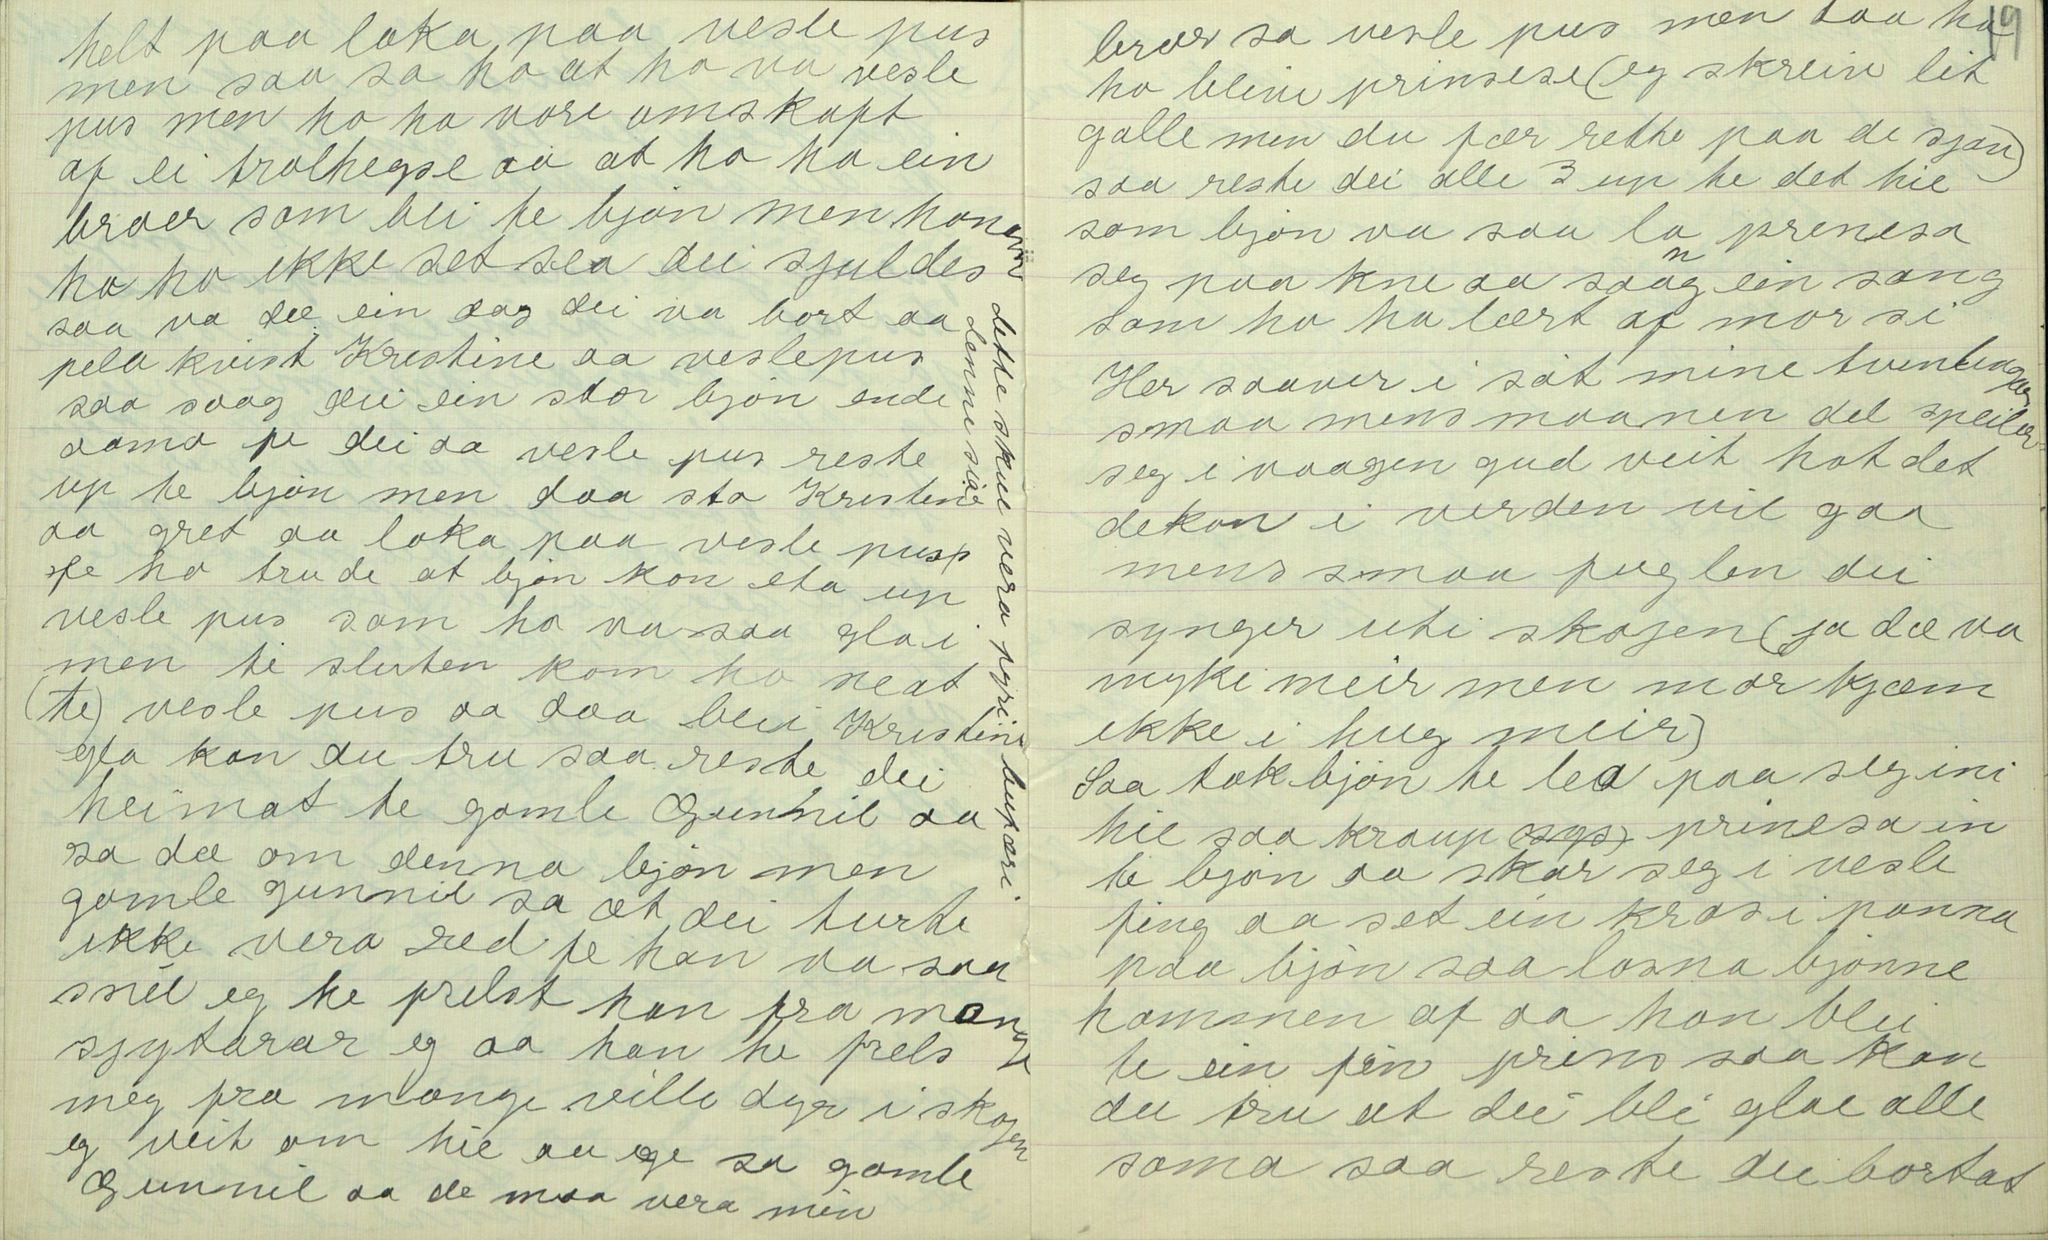 helt paa loka paa vesle pus
men saa sa ho at ho va vesle
pus men ho ha vore omskapt
af ei trolhegse aa at ho ha ein
broer som blei te bjön men honom
ha ho ikke set sea dei sjuldes
saa va dæ ein dag dei va bort aa
pela kvist Kristine aa veslepus
saa saag dei ein stor bjön ende
aamo fe dei aa vesle pus reste
up te bjön men daa sto Kristine
aa gret aa loka paa vesle pus
fe ho trude at bjön kon eta up
vesle pus som ho va saa glai
men te slutten kom ho neat
(te) vesle pus aa daa blei Kristine
gla kan du tru saa reste dei
heimat te gamle Gunnil aa
sa dæ om denna bjön men
gamle gunnil sa at dei turte
ikke vera red fe han va saa
snil eg he frelst han fra mange
sjytarar eg aa han he frels
meg fra mange ville dyr i skogen
eg veit om hie aa ge sa gamle
Gunnil aa de maa vera min
dette skul vera fyri bufæri
denne siæ
19
broer sa vesle pus men daa ha
ho bleve prinsese (eg skreiv lit
galle men du fær rette paa de sjøu)
saa reste dei alle 3 up te det hie
som bjön va saa la prinesa
seg paa kne aa saang ein sang
som ho ha lært af mor si
Her saaver i söt mine tvenlinger
smaa mens maanen del speiler
seg i vaagen gud veit hot det
dekon i verden vil gaa
mens smaa fuglen dei
synger uti skogen (ja dæ va
myki meir men mor kjæm
ikke i hug meir)
Saa tok bjön te lea paa seg ini
hie saa kraup prinesa in
te bjön aa skar seg i vesle
fing aa set ein kros i panna
paa bjön saa losna bjönne
hammen af aa han blei
te ein fin prins saa kan
du tru at dei blei glae alle
soma saa reste dei bortat